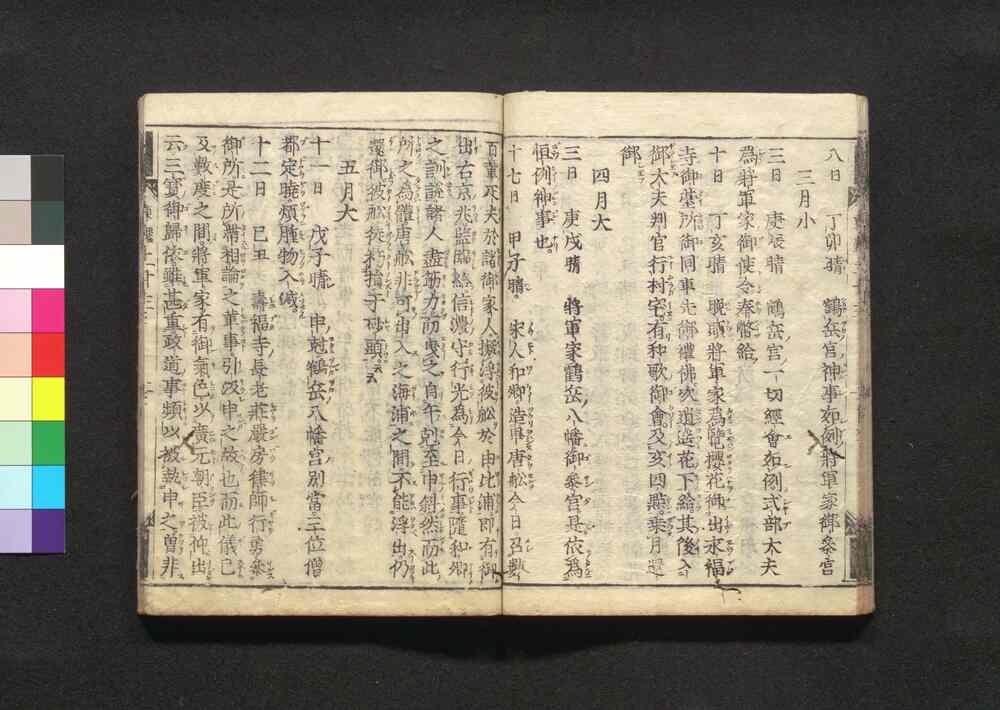 八日 丁卯晴 鶴岳宮神事如例將軍家御參宮
三月小
三日 庚辰晴 鶴岳宮一切經會如例式部大夫
爲將軍家御使令奉幣給
十日 丁亥晴 晩頭將軍家爲覽櫻花御出永福
寺御臺所御同車先御禮佛次逍遥花下給其後入
御大夫判官行村宅有和歌御會及亥四點乗月還
御
四月大
三日 庚戌晴 將軍家鶴岳八幡御參宮是依爲
恒例神事也
十七日 甲子晴 宋人和卿造畢唐舩今日召數
百輩疋夫於諸御家人擬浮彼舩於由比浦即有御
出右京兆監臨給信濃守行光爲今日行事隨和卿
之訓説諸人盡筋力而曳之自午尅至申斜然而此
所之爲體唐舩非可出入之海浦之間不能浮出仍
還御彼舩徒朽損于砂頭云云
五月大
十一日 戊子晴 申尅鶴岳八幡宮別當三位僧
都定曉煩腫物入滅
十二日 己丑 壽福寺長老莊嚴房律師行勇參
御所是所帶相論之輩事引級申之故也而此儀已
及數度之間將軍家有御氣色以廣元朝臣被仰出
云三寳御歸依雖甚重政道事頻以被執申之曽非